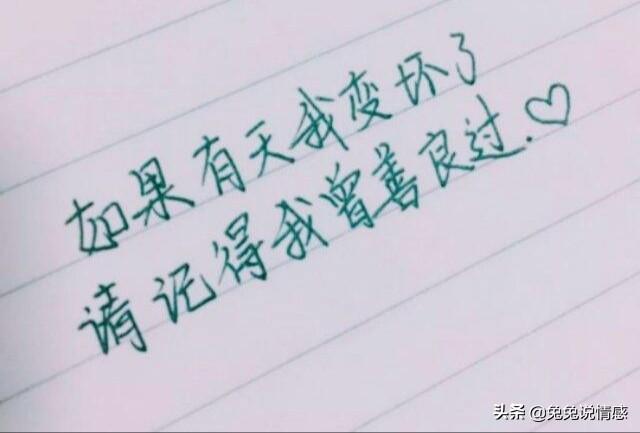 如果有天我变坏了
请记得我曾善良过.♡
头条 @兔兔说情感